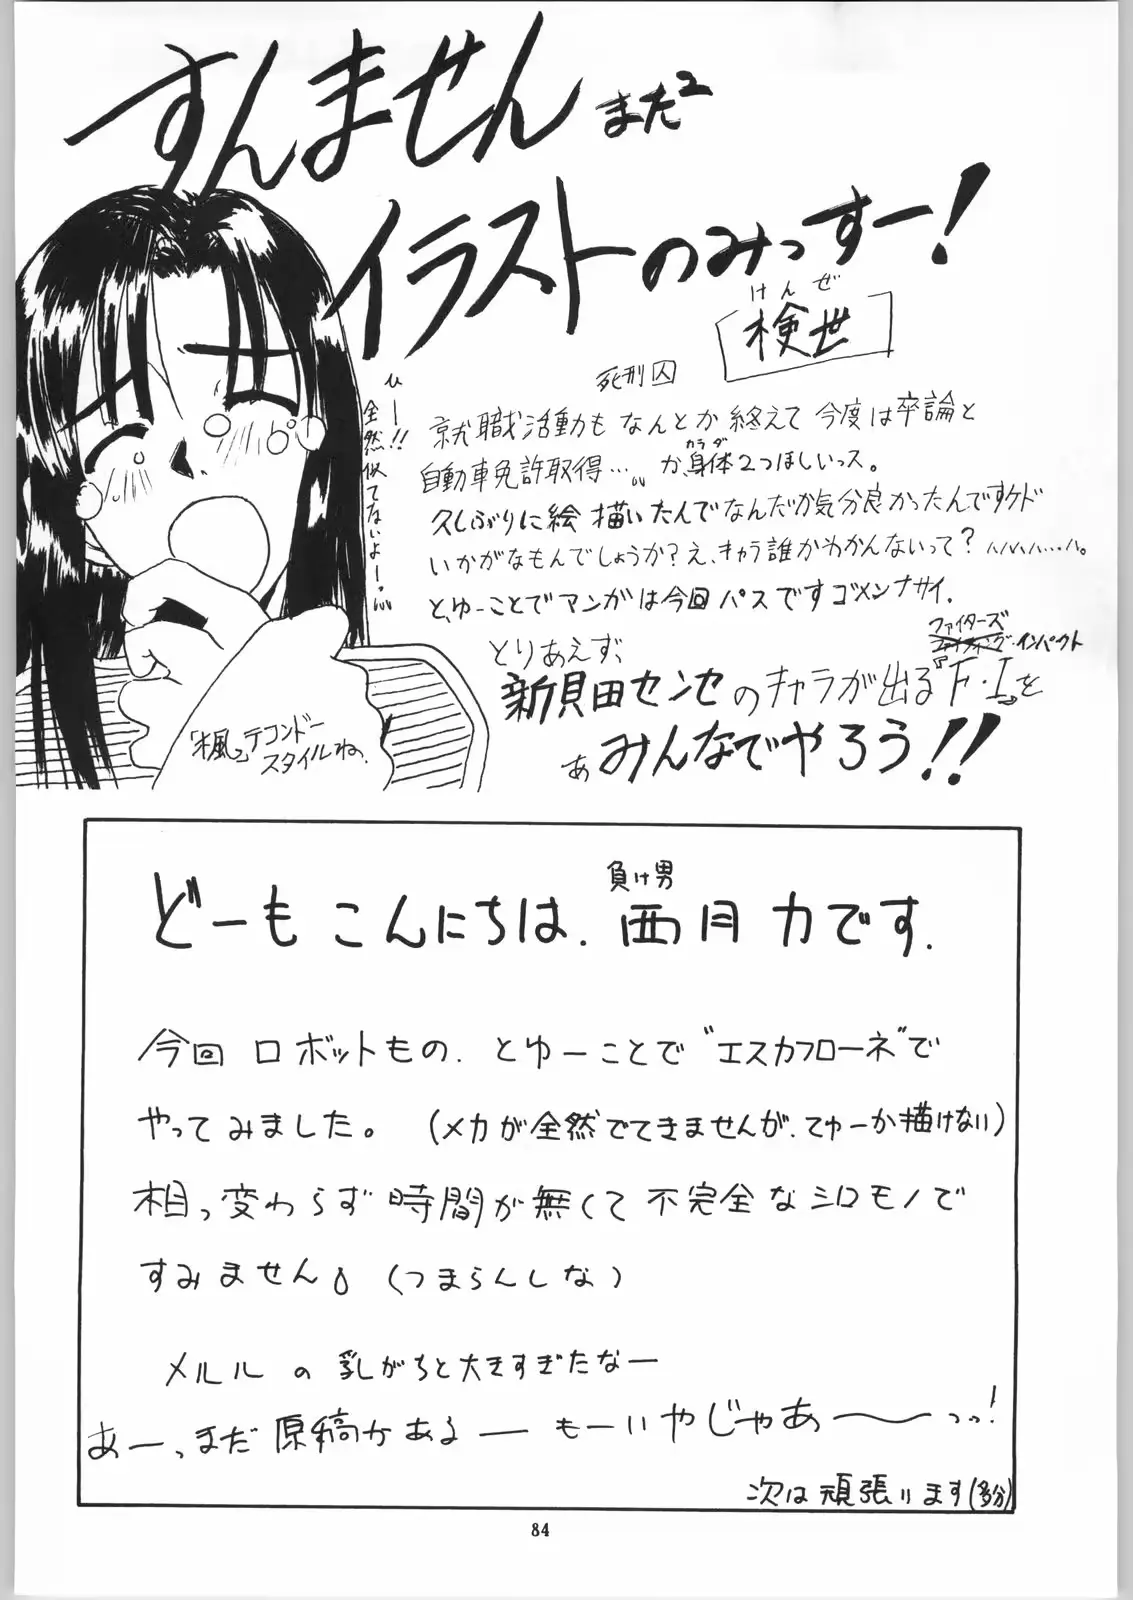 すんません まだ2
イラストのみっすー!
けんぜ
検世
死刑囚
就職活動もなんとか終えて今度は卒論と
自動車免許取得… が、身体2つほしいっス。
カラダ
久しぶりに絵描いたんでなんだか気分良かったんですケド
いかがなもんでしょうか?え、キャラ誰かわかんないって?ハハハハ…ハ。
と、ゆーことでマンガは今回パスですゴメンナサイ.
とりあえず、
ファイターズ
インパクト
新貝田センセのキャラが出る『F・I』を
みんなでやろう!!
ひー!!
全然似てないよー
「楓」テコンドー
スタイルね.
負け男
どーもこんにちは. 西月力です.
今回 ロボットもの. とゆーことで"エスカフローネ"で
やってみました。 (メカが全然でてきませんが.てゅーか描けない)
相っ変わらず時間が無くて不完全なシロモノで
すみません。 (つまらんしな)
メルルの乳がちと大きすぎたなー
あーっまだ原稿がある― もーいやじゃあ~~っっ!
次は頑張ります(多分)
84